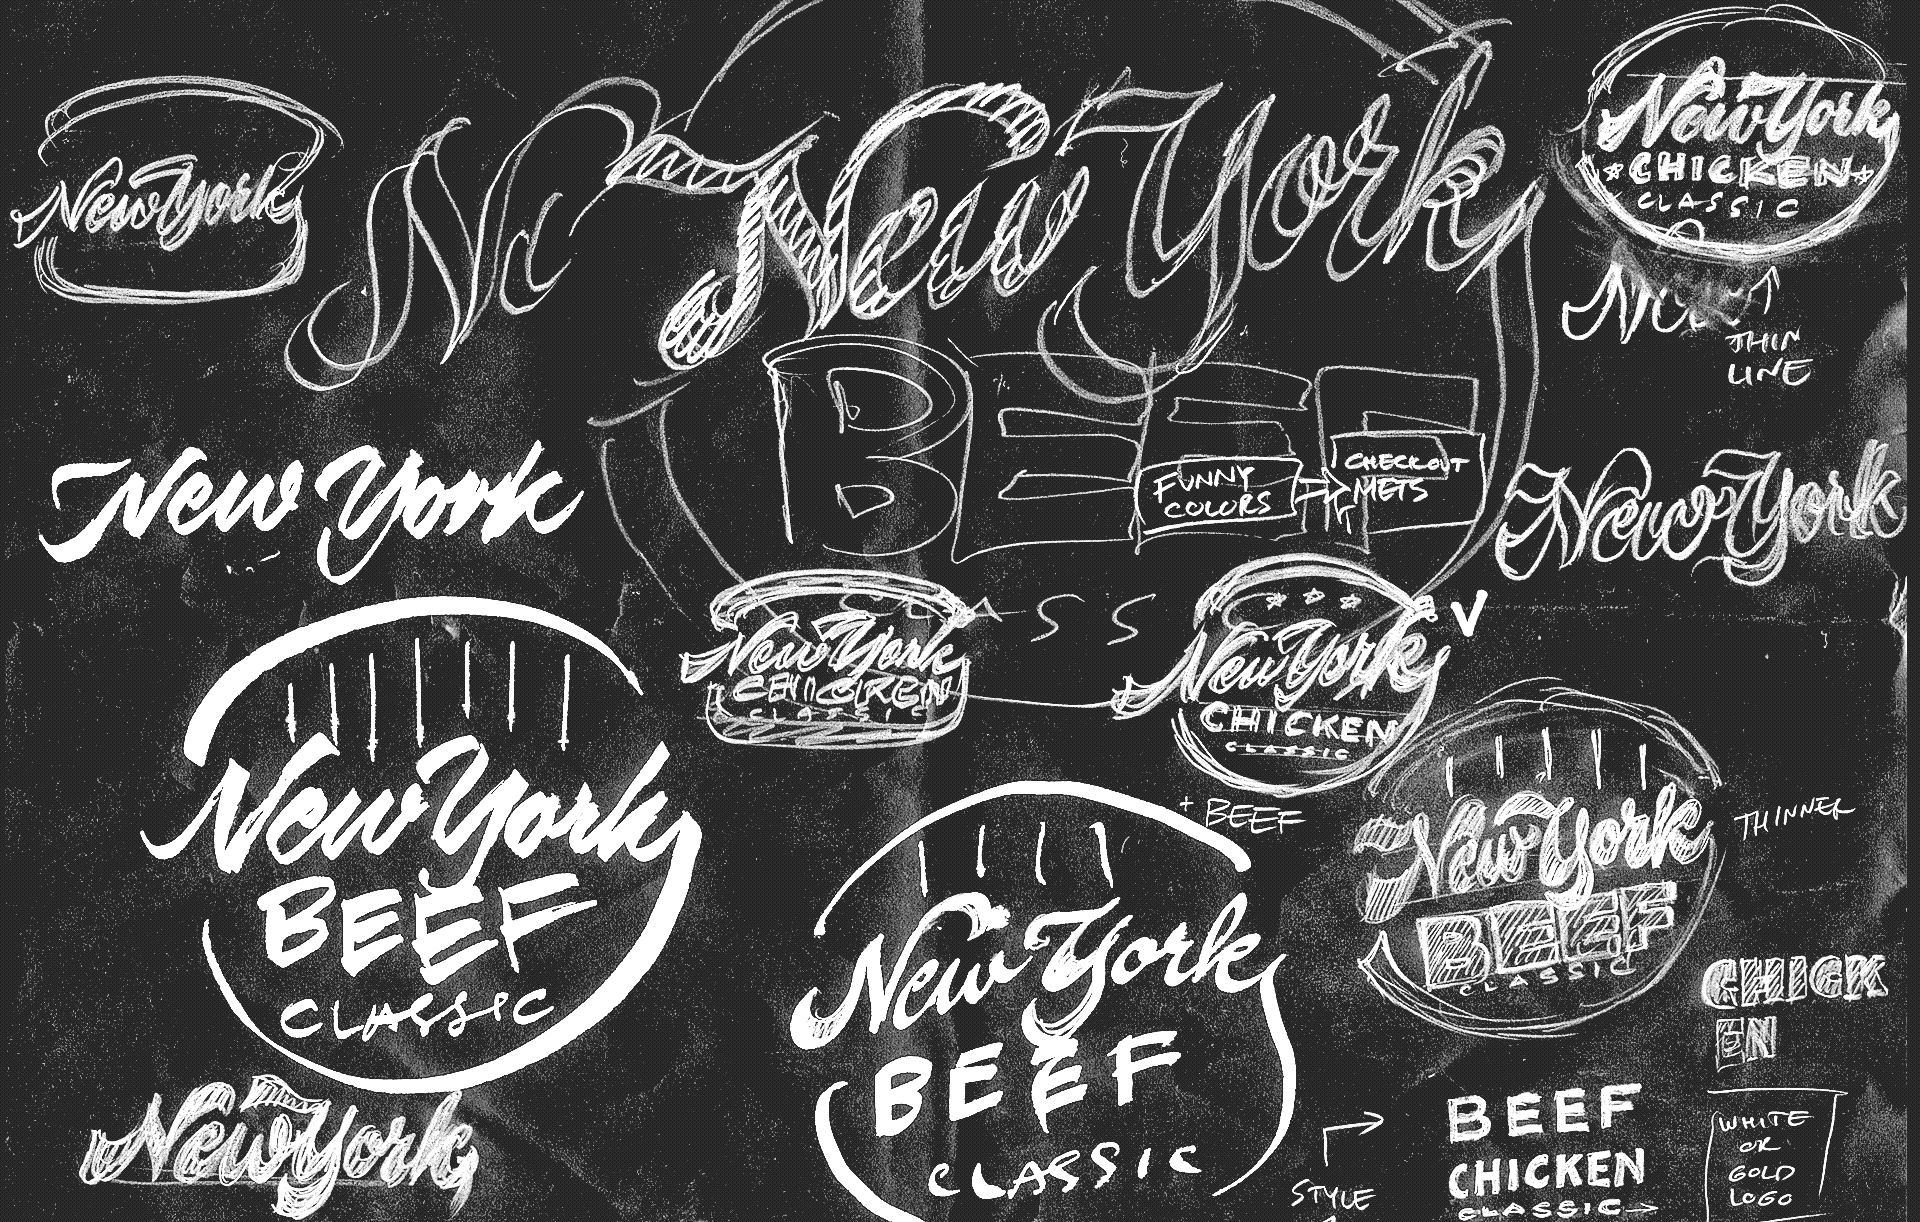 New York
Ne
New York
BEEF
FUNNY
COLORS
CHECKOUT
METS
New York
CHICKEN
CLASSIC
THIN
LINE
New York
New York
CLASS
New York
CHICKEN
CLASSIC
New York
CHICKEN
CLASSIC
V
+ BEEF
New York
BEEF
CLASSIC
New York
BEEF
CLASSIC
New York
BEEF
CLASSIC
THINNER
CHICK
EN
New York
STYLE
BEEF
CHICKEN
CLASSIC
WHITE
OR
GOLD
LOGO